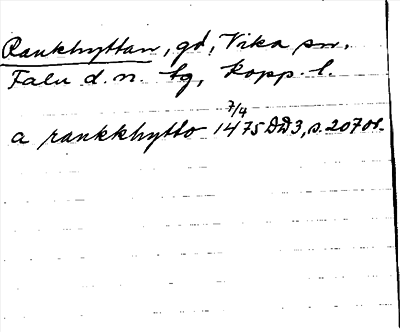 Rankhyttan, gd, Vika sn,
Falu d. n. tg, Kopp. l.
7/4
a rankkhytto 1475 DD3, s. 207 or.